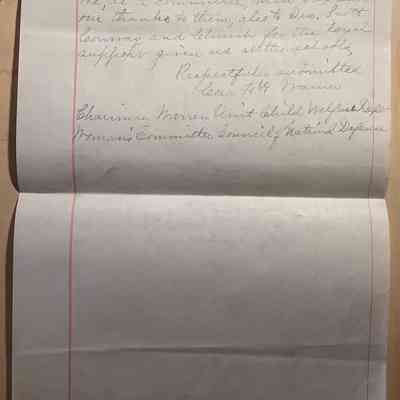 our thanks to them, also to Drs.
Conway and for the loyal
support given us in the schools,
Respectfully submitted
Warner
Chairman Warren Unit Child Welfare Dept
Woman's Committee Council of National Defense